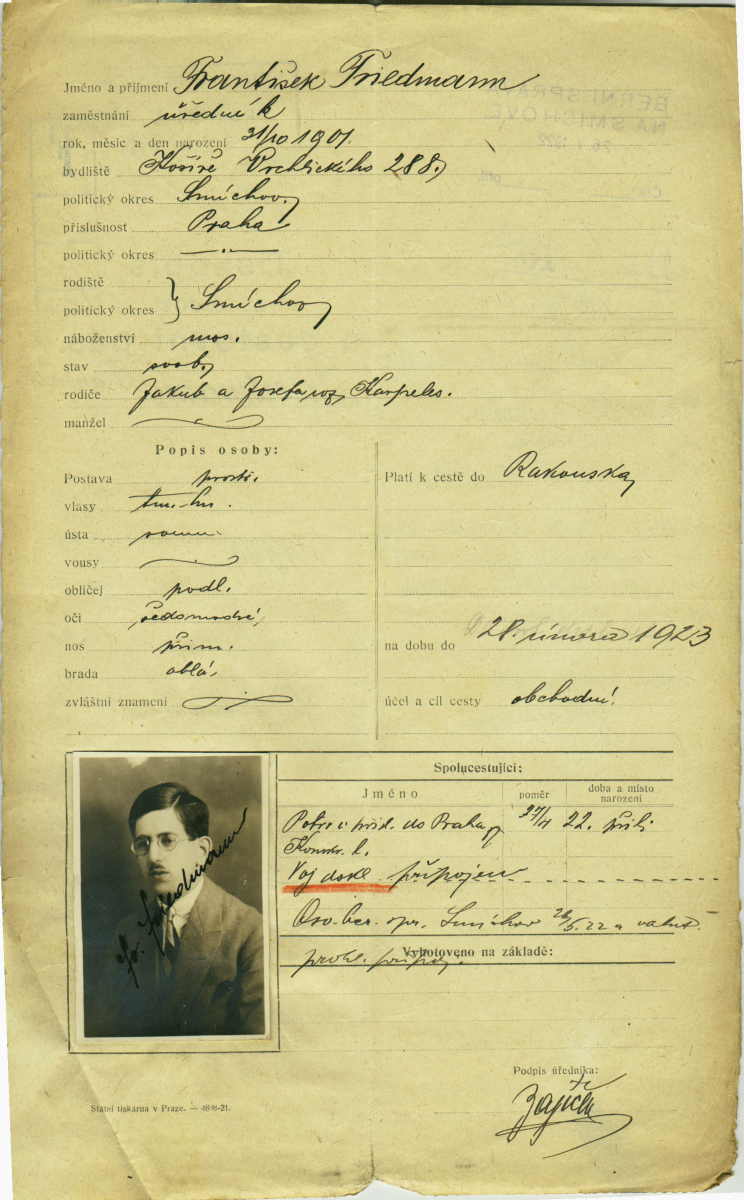 Jméno a příjmení František Friedmann
zaměstnání úředník
rok, měsíc a den narození 31/10 1901.
bydliště Košíře Vrchlického 288.
politický okres Smíchov
příslušnost Praha
politický okres —„—
rodiště
politický okres } Smíchov
náboženství mos.
stav svob.
rodiče Jakub a Josefa roz. Karpeles.
manžel
Popis osoby:
Postava prostř.
vlasy tm. hn.
ústa soum.
vousy
obličej podl.
oči šedomodré
nos přim.
brada oblá
zvláštní znamení
Platí k cestě do Rakouska
na dobu do 28. února 1923
účel a cíl cesty obchodní
Spolucestující:
Jméno poměr doba a místo narození
do Praha 22.
Voj. dokl. připojen
Smíchov
Vyhotoveno na základě:
Fr. Friedmann
Podpis úředníka:
Státní tiskárna v Praze. — 4898-21.
BERNÍ SPRÁVA
NA SMÍCHOVĚ